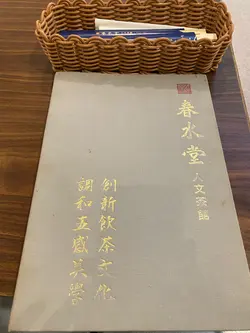 春水堂
人文茶館
創新飲茶文化
調和五感美學